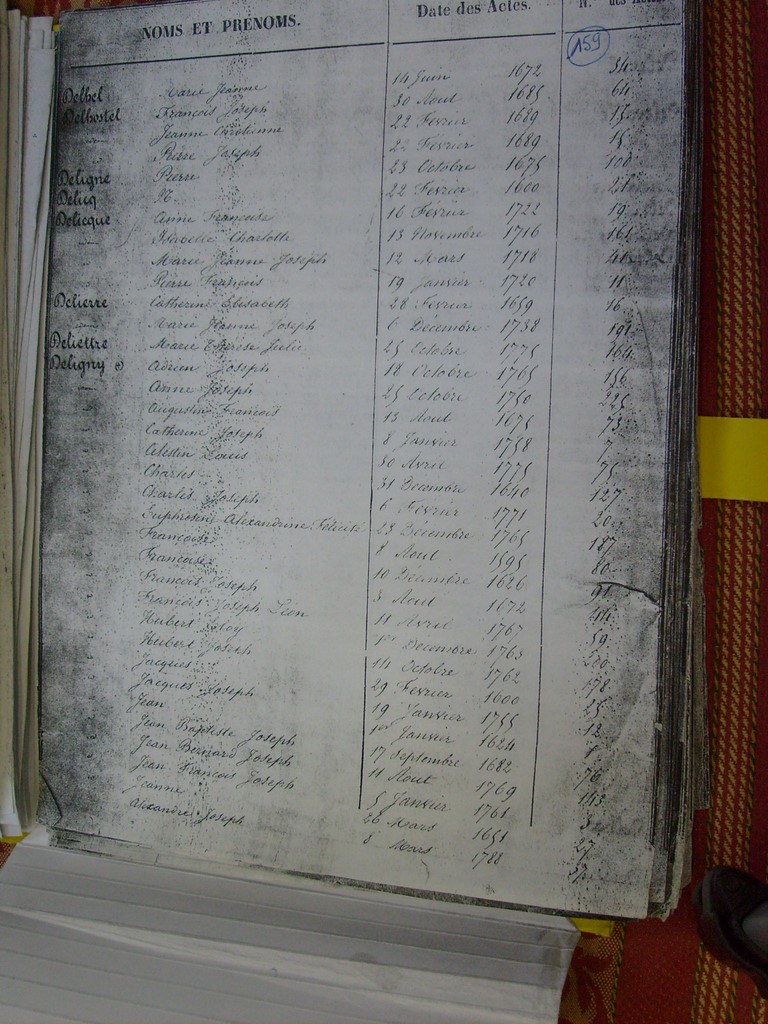 NOMS ET PRÉNOMS. Date des Actes. N.° des Actes.
159
Delhel Marie Jeanne 14 Juin 1672 34
Delhostel François Joseph 30 Aout 1685 64
Jeanne Chrétienne 22 Février 1689 15
Pierre Joseph 22 Février 1689 15
Deligne Pierre 23 Octobre 1675 100
Delicq N. 22 Février 1600 21
Delicque Anne Françoise 16 Février 1722 19
Isabelle Charlotte 13 Novembre 1716 161
Marie Jeanne Joseph 12 Mars 1718 41
Pierre François 19 Janvier 1720 11
Delierre Catherine Elisabeth 28 Février 1659 16
Marie Jeanne Joseph 6 Décembre 1738 191
Deliettre Marie Thérèse Julie 25 Octobre 1775 164
Deligny Adrien Joseph 18 Octobre 1765 156
Anne Joseph 25 Octobre 1750 225
Augustin François 13 Aout 1675 73
Catherine Joseph 8 Janvier 1758 7
Célestin Louis 30 Avril 1775 75
Charles 31 Décembre 1640 127
Charles Joseph 6 Février 1771 20
Euphrosine Alexandrine Félicité 23 Décembre 1765 187
Françoise 8 Aout 1595 80
Françoise 10 Décembre 1626 91
François Joseph 3 Aout 1672 44
François Joseph Léon 11 Avril 1767 59
Hubert Eloy 1er Décembre 1763 200
Hubert Joseph 14 Octobre 1762 178
Jacques 29 Février 1600 25
Jacques Joseph 19 Janvier 1755 12
Jean 1er Janvier 1624 1
Jean Baptiste Joseph 17 Septembre 1682 76
Jean Bernard Joseph 11 Aout 1769 143
Jean François Joseph 5 Janvier 1761 3
Jeanne 26 Mars 1651 27
Alexandre Joseph 8 Mars 1788 37